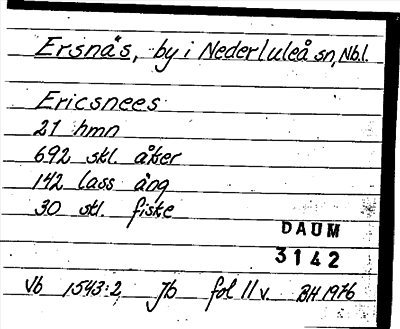 Ersnäs, by i Nederluleå sn, Nb.l.
Ericsnees
21 hmn
692 skl. åker
142 lass äng
30 skl. fiske
DAUM
3142
Vb 1543:2 Jb fol 11 v. BH 1976